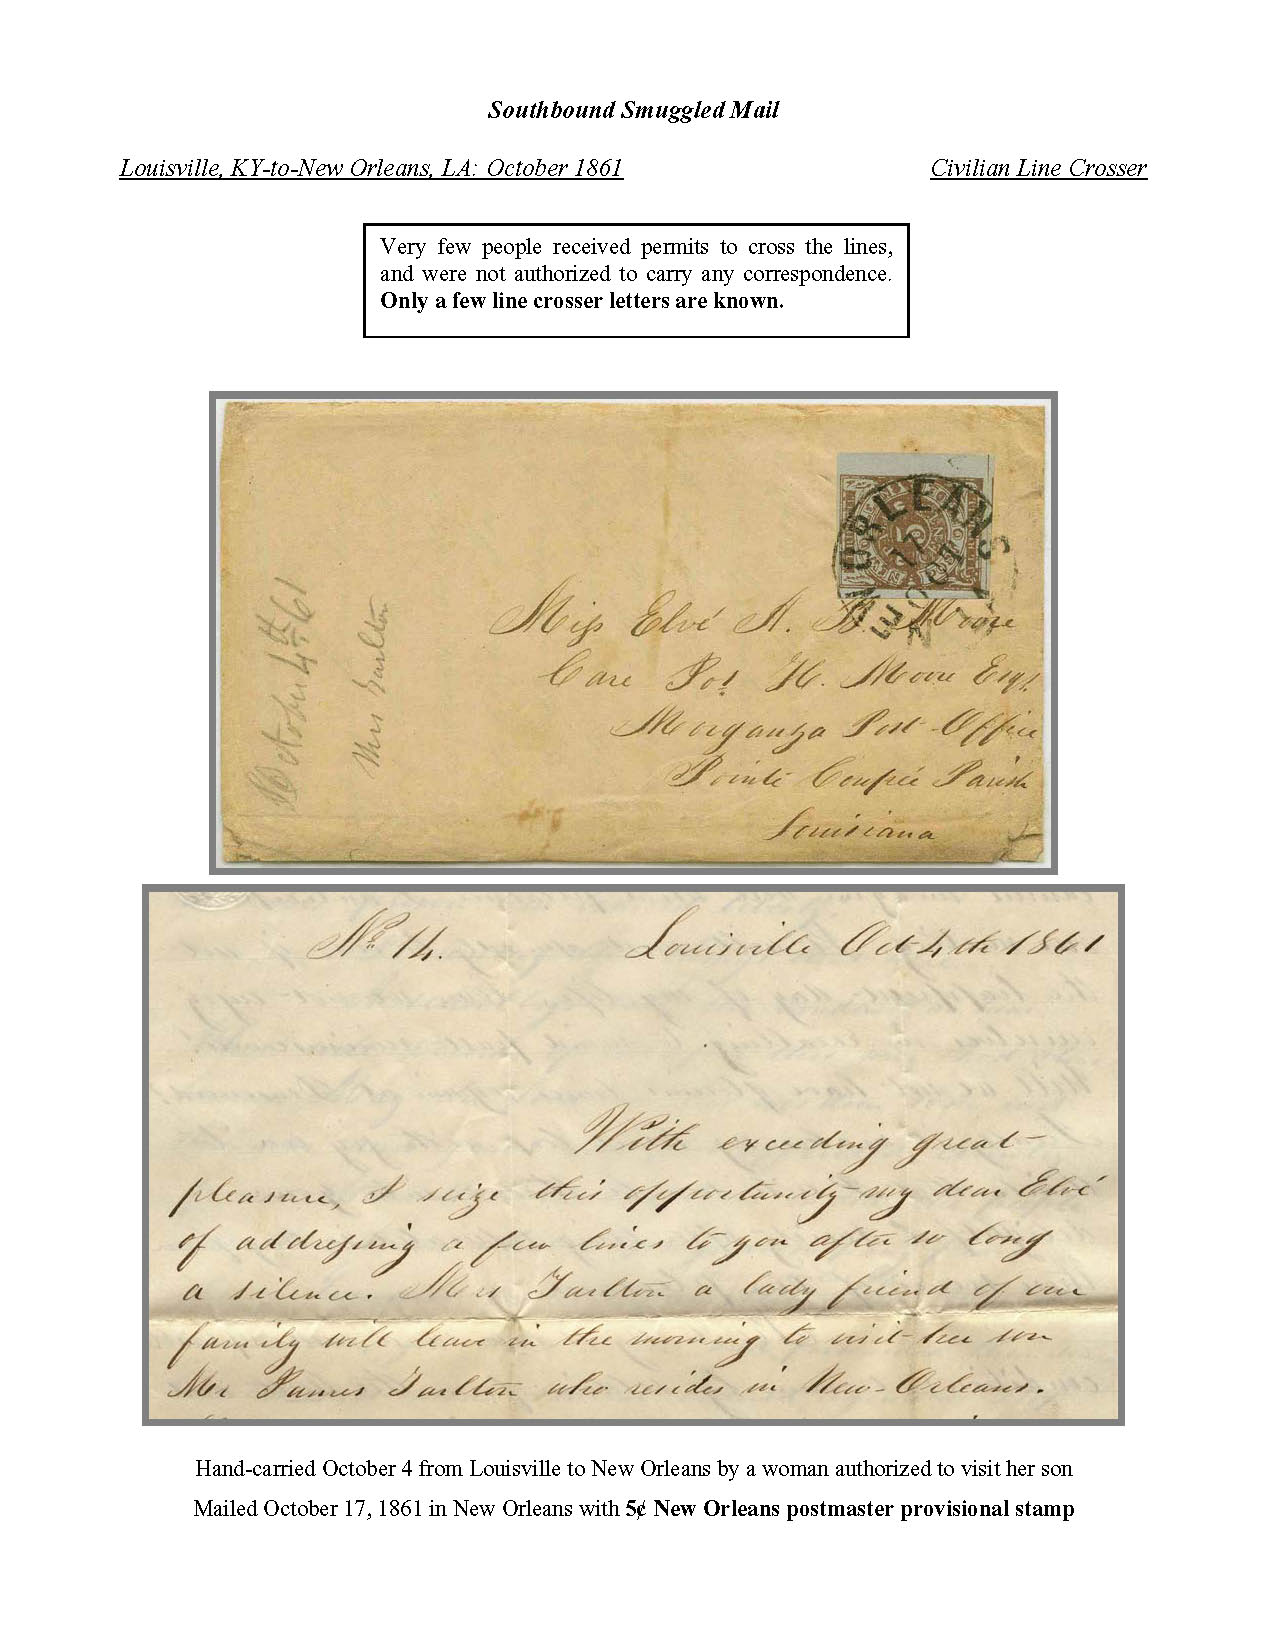 Southbound Smuggled Mail
Louisville, KY-to-New Orleans, LA: October 1861
Civilian Line Crosser
Very few people received permits to cross the lines,
and were not authorized to carry any correspondence.
Only a few line crosser letters are known.
N. ORLEANS
17
OCT
5
Miss Elvé A. B. Moore
Care Jos. H. Moore Esqr.
Morganza Post-Office
Pointe Coupée Parish
Louisiana
October 4th 61
Mrs Tarlton
No. 14.
Louisville Oct 4th 1861
With exceeding great
pleasure, I seize this opportunity my dear Elvé
of addressing a few lines to you after so long
a silence. Mrs Tarlton a lady friend of our
family will leave in the morning to visit her son
Mr James Tarlton who resides in New-Orleans.
Hand-carried October 4 from Louisville to New Orleans by a woman authorized to visit her son
Mailed October 17, 1861 in New Orleans with 5¢ New Orleans postmaster provisional stamp